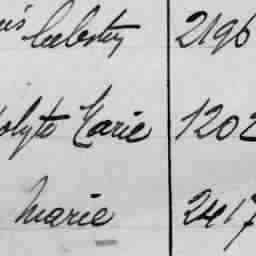 Celestin 2196
olyte Marie 1202
Marie 2417